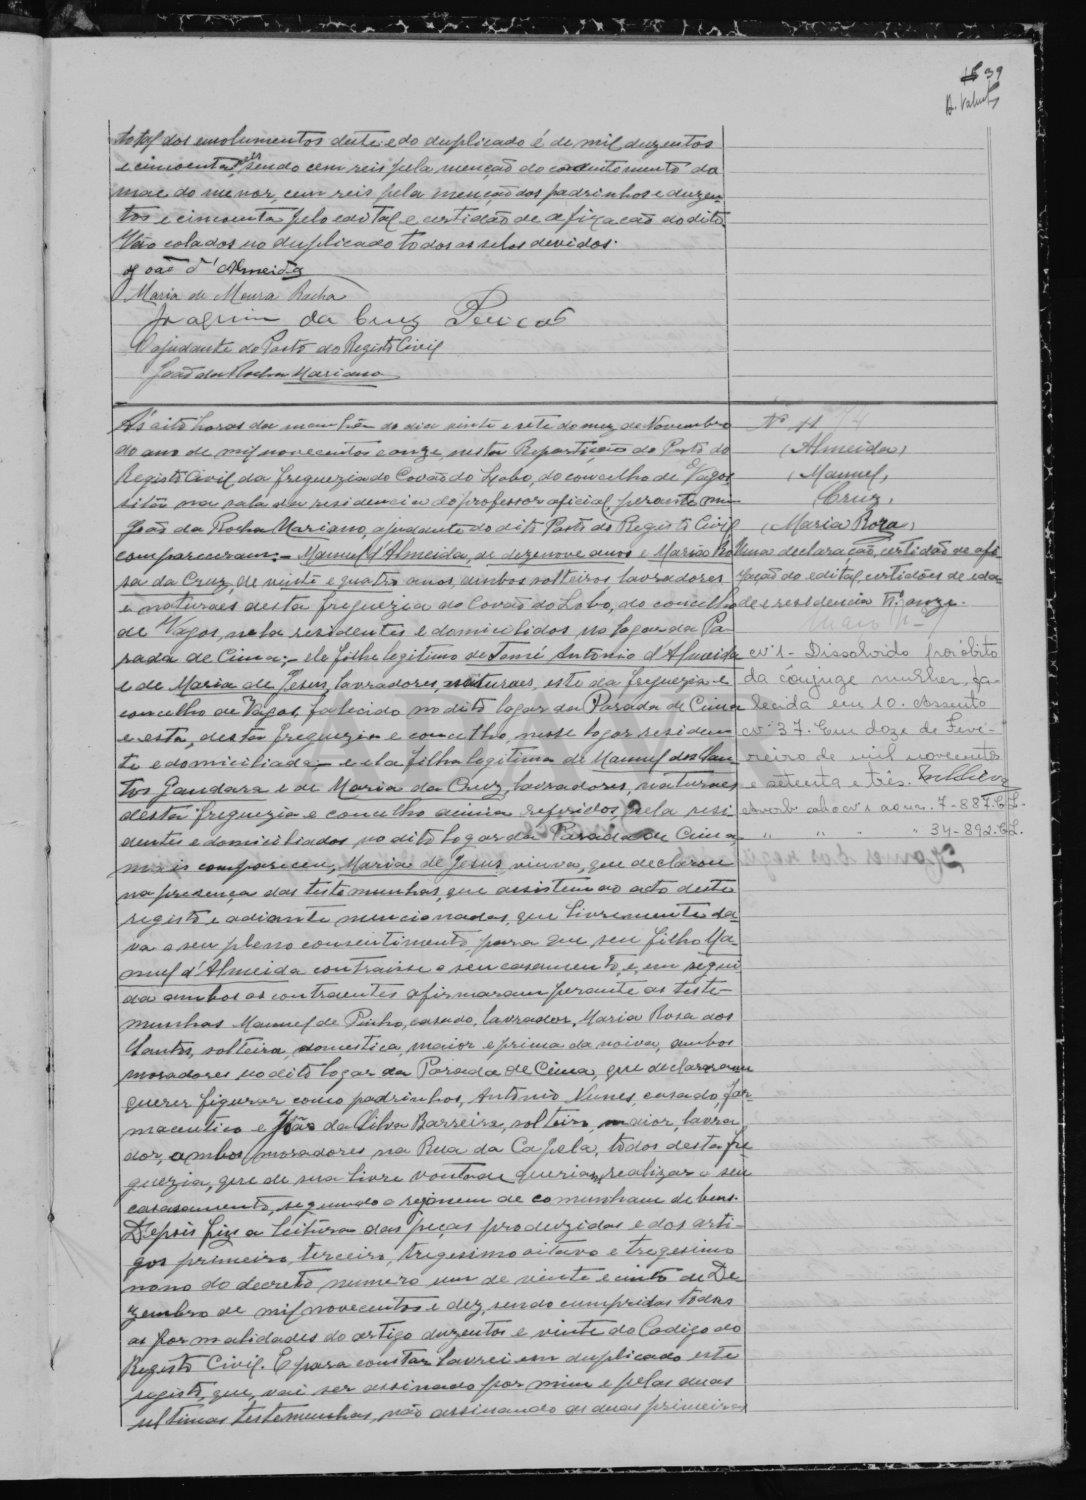 39
total dos emolumentos deste e do duplicado é de mil duzentos
e cincoenta reis, sendo cem reis pela menção do consentimento da
mãe do menor, cem reis pela menção dos padrinhos e duzen-
tos e cincoenta pelo edital e certidão de afixação do dito.
Vão colados no duplicado todos os selos devidos.
João d'Almeida
Maria de Moura Rocha
Joaquim da Cruz
O ajudante do Posto do Registo Civil
João da Rocha Mariano
Ás oito horas da manhã do dia vinte e sete do mez de Novembro
do ano de mil novecentos e onze, nesta Repartição do Posto do
Registo Civil da freguezia do Covão do Lobo, do concelho de Vagos,
sitão na sala da residencia do professor oficial, perante mim
João da Rocha Mariano, ajudante do dito Posto do Registo Civil
compareceram:- Manuel d'Almeida, de dezenove anos e Maria Ro-
sa da Cruz, de vinte e quatro anos, ambos solteiros lavradores
e naturaes desta freguezia do Covão do Lobo, do concelho
de Vagos, nela residentes e domicilidos no logar da Pa-
rada de Cima;- ele filho legitimo de Tomé Antonio d'Almeida
e de Maria de Jesus, lavradores, naturaes, este da freguezia e
concelho de Vagos, falecido no dito logar da Parada de Cima
e esta, desta freguezia e concelho, nesse logar residen-
te e domiciliada - e ela filha legitima de Manuel dos San-
tos Gandara e de Maria da Cruz, lavradores, naturaes
desta freguezia e concelho acima referidos, nela resi-
dentes e domiciliados no dito logar da Parada de Cima,
mais compareceu, Maria de Jesus, viuva, que declarou
na presença das testemunhas, que assistem ao acto deste
registo e adiante mencionadas, que livremente da-
va o seu pleno consentimento para que seu filho Ma-
nuel d'Almeida contraisse o seu casamento, e, em segui-
da ambos os contraentes afirmaram perante as teste-
munhas Manuel de Pinho, casado, lavrador, Maria Rosa dos
Santos, solteira, domestica, maior e prima da noiva, ambos
moradores no dito logar da Parada de Cima, que declararam
querer figurar como padrinhos, Antonio Nunes, casado, far-
maceutico e João da Silva Barreira, solteiro, maior, lavra-
dor, ambos moradores na Rua da Capela, todos desta fre
guezia, que de sua livre vontade queriam realizar o seu
casasamento, segundo o rejimem de comunham de bens.
Depois fiz a leitura das peças produzidas e dos arti-
gos primeiro, terceiro, trigesimo oitavo e trigesimo
nono do decreto numero um de vinte e cinco de De
zembro de mil novecentos e dez, sendo cumpridas todas
as formalidades do artigo duzentos e vinte do Codigo do
Registo Civil. E para constar lavrei em duplicado este
registo, que, vai ser assinado por mim e pelas duas
ultimas testemunhas, não assinando as duas primeiras
Nº 11
(Almeida)
(Manuel)
(Cruz)
(Maria Roza)
Uma declaração, certidão de afi-
xação do edital, certidões de ida-
de e residencia Nº onze.
Nº 1 - Dissolvido por óbito
da cônjuge mulher, fa-
lecida em 10. Assento
nº 37. Em doze de Feve-
reiro de mil novecentos
e setenta e três.
Averb. sob o nº 1 ao